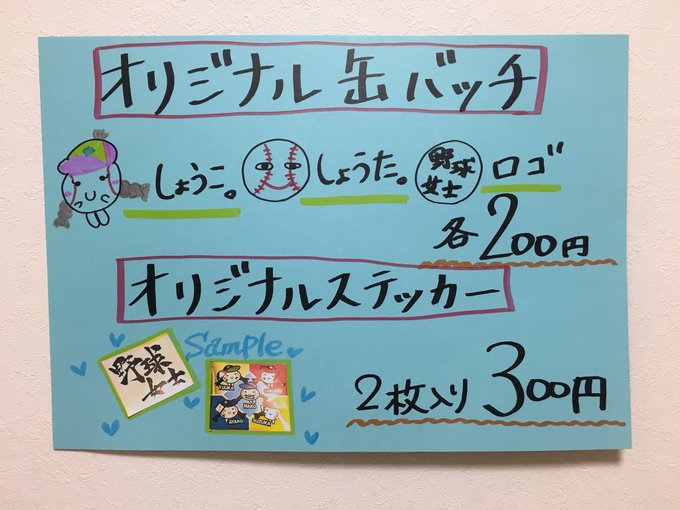 オリジナル缶バッチ
しょうこ。 しょうた。 野球女士 ロゴ
各200円
オリジナルステッカー
Sample
野球女士
AYAKO
2枚入り 300円